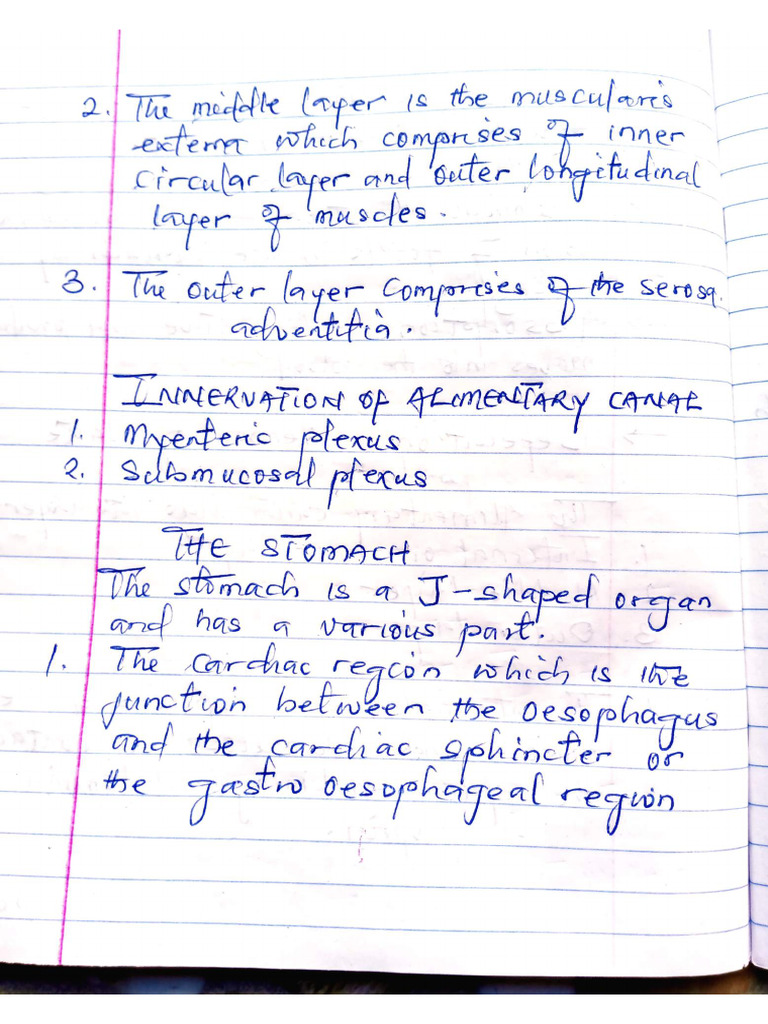 2. The middle layer is the muscularis
externa which comprises of inner
circular layer and outer longitudinal
layer of muscles.
3. The outer layer comprises of the serosa
adventitia.
INNERVATION OF ALIMENTARY CANAL
1. Myenteric plexus
2. Submucosal plexus
THE STOMACH
The stomach is a J-shaped organ
and has a various part.
1. The cardiac region which is the
junction between the oesophagus
and the cardiac sphincter or
the gastro oesophageal region